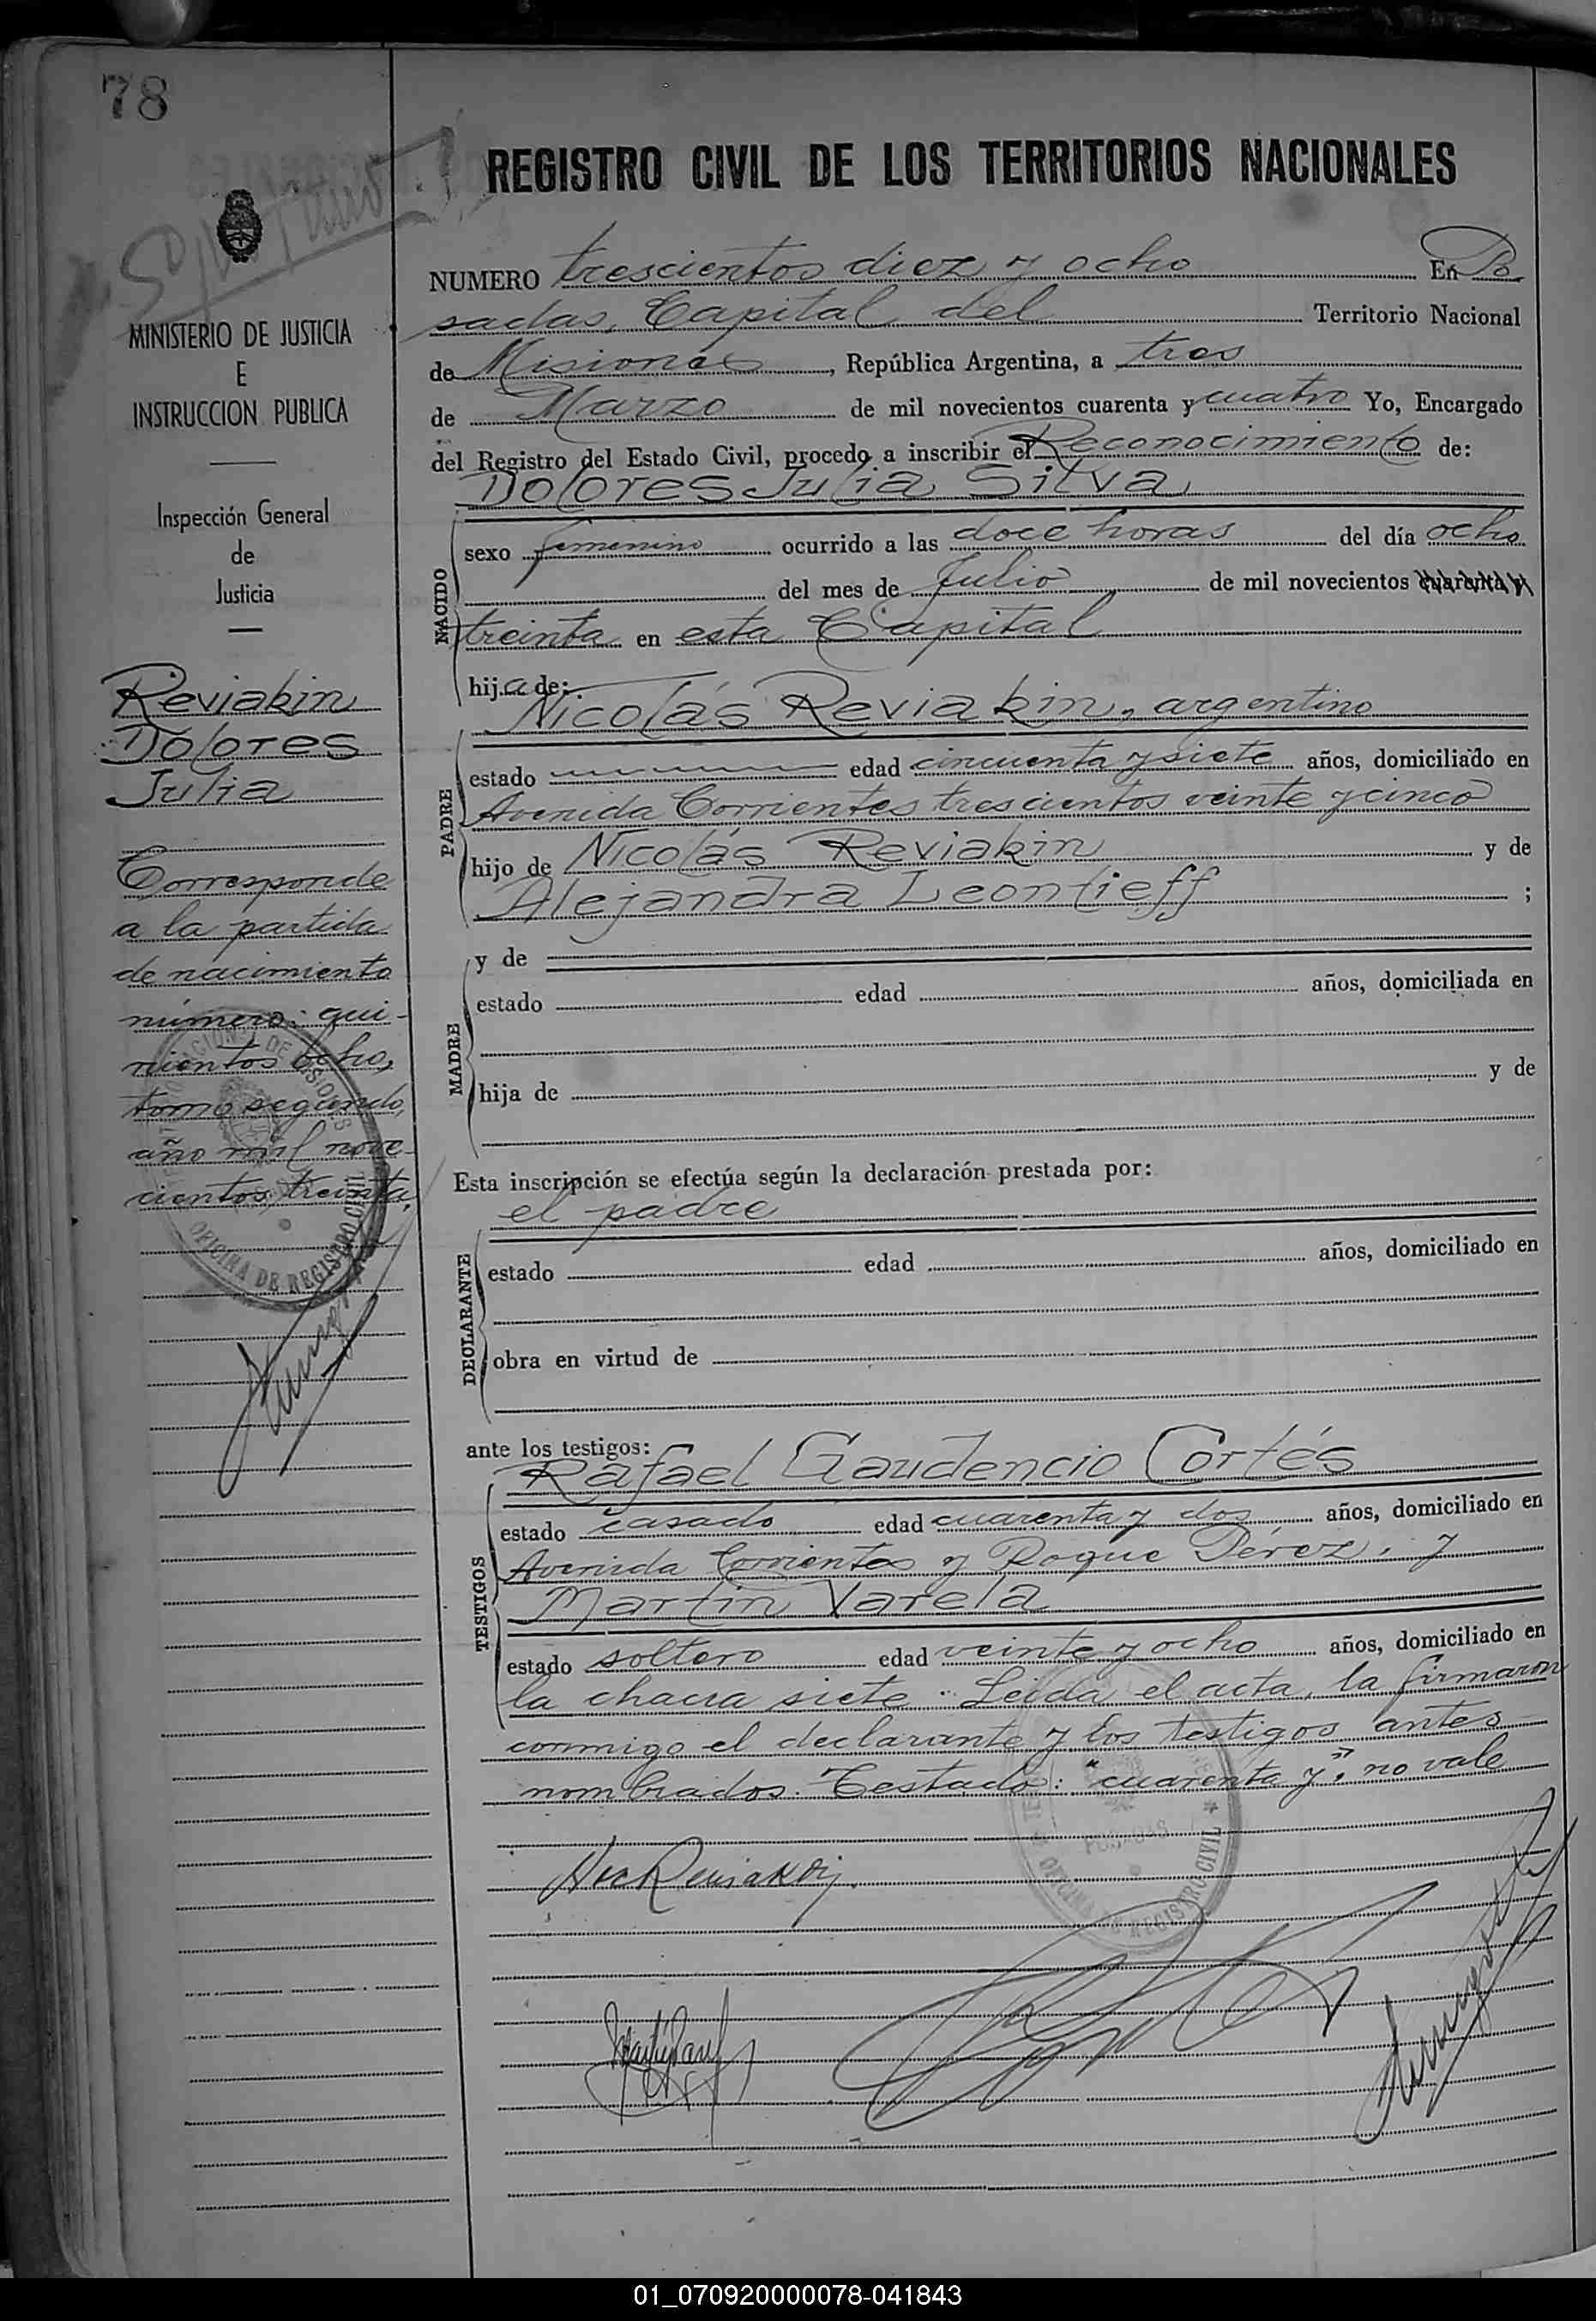 78
REGISTRO CIVIL DE LOS TERRITORIOS NACIONALES
MINISTERIO DE JUSTICIA
E
INSTRUCCION PUBLICA
Inspección General
de
Justicia
Reviakin
Dolores
Julia
Corresponde
a la partida
de nacimiento
número: qui-
nientos ocho,
tomo segundo,
año mil nove-
cientos treinta.
OFICINA DE REGISTRO CIVIL
NUMERO trescientos diez y ocho En Po
sadas, Capital del Territorio Nacional
de Misiones, República Argentina, a tres
de Marzo de mil novecientos cuarenta y cuatro Yo, Encargado
del Registro del Estado Civil, procedo a inscribir el Reconocimiento de:
Dolores Julia Silva
NACIDO
sexo femenino ocurrido a las doce horas del día ocho
del mes de Julio de mil novecientos cuarenta y
treinta en esta Capital
hija de:
Nicolás Reviakin, argentino
PADRE
estado edad cincuenta y siete años, domiciliado en
Avenida Corrientes trescientos veinte y cinco
hijo de Nicolás Reviakin y de
Alejandra Leontieff ;
y de
MADRE
estado edad años, domiciliada en
hija de y de
Esta inscripción se efectúa según la declaración prestada por:
el padre
DECLARANTE
estado edad años, domiciliado en
obra en virtud de
ante los testigos:
Rafael Gaudencio Cortés
TESTIGOS
estado casado edad cuarenta y dos años, domiciliado en
Avenida Corrientes y Roque Pérez, y
Martin Varela
estado soltero edad veinte y ocho años, domiciliado en
la chacra siete. Leida el acta, la firmaron
conmigo el declarante y los testigos antes
nombrados. Testado: "cuarenta y", no vale
POSADAS
OFICINA DE REGISTRO CIVIL
01_070920000078-041843